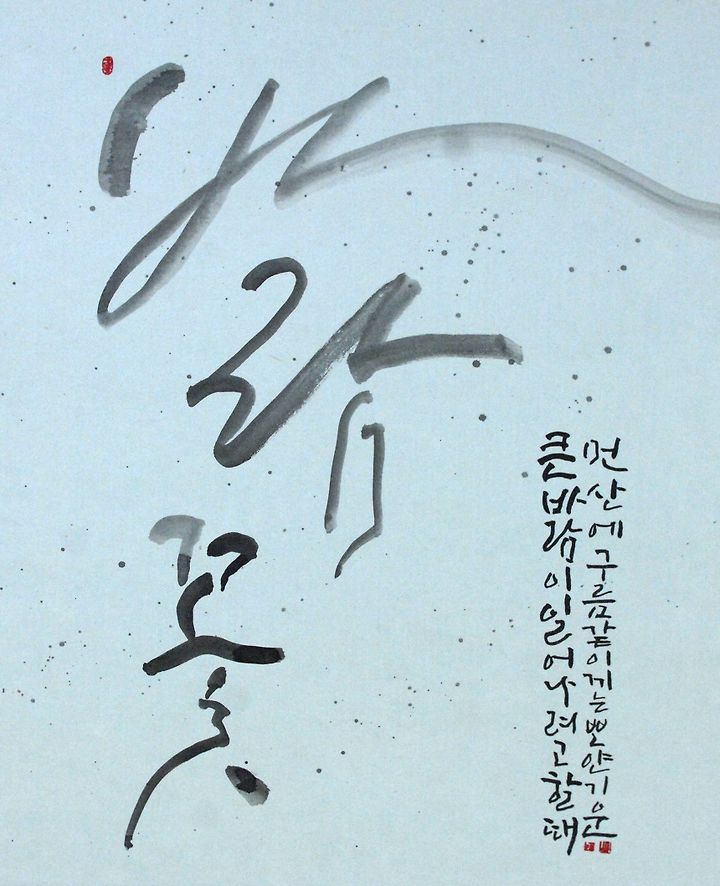 바람꽃
큰바람이일어나려고할때
먼산에구름같이끼는뽀얀기운